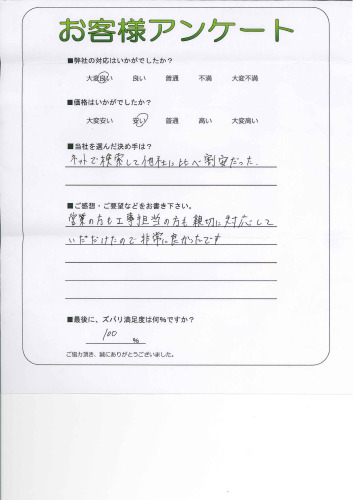 お客様アンケート
■弊社の対応はいかがでしたか？
大変良い 良い 普通 不満 大変不満
■価格はいかがでしたか？
大変安い 安い 普通 高い 大変高い
■当社を選んだ決め手は？
ネットで検索して他社に比べ割安だった.
■ご感想・ご要望などをお書き下さい。
営業の方も工事担当の方も親切に対応して
いただけたので非常に良かったです
■最後に、ズバリ満足度は何％ですか？
100 %
ご協力頂き、誠にありがとうございました。